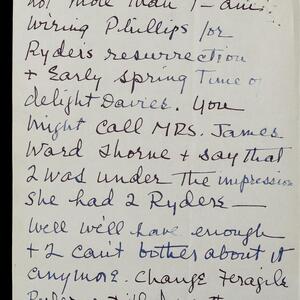 not more than 1 - am
wiring Phillips for
Ryder's resurrection
+ Early Spring Time of
delight Davies. You
might call MRS. James
Ward Thorne + say that
I was under the impression
she had 2 Ryders —
well we'll have enough
+ I can't bother about it
anymore. Change Feragile